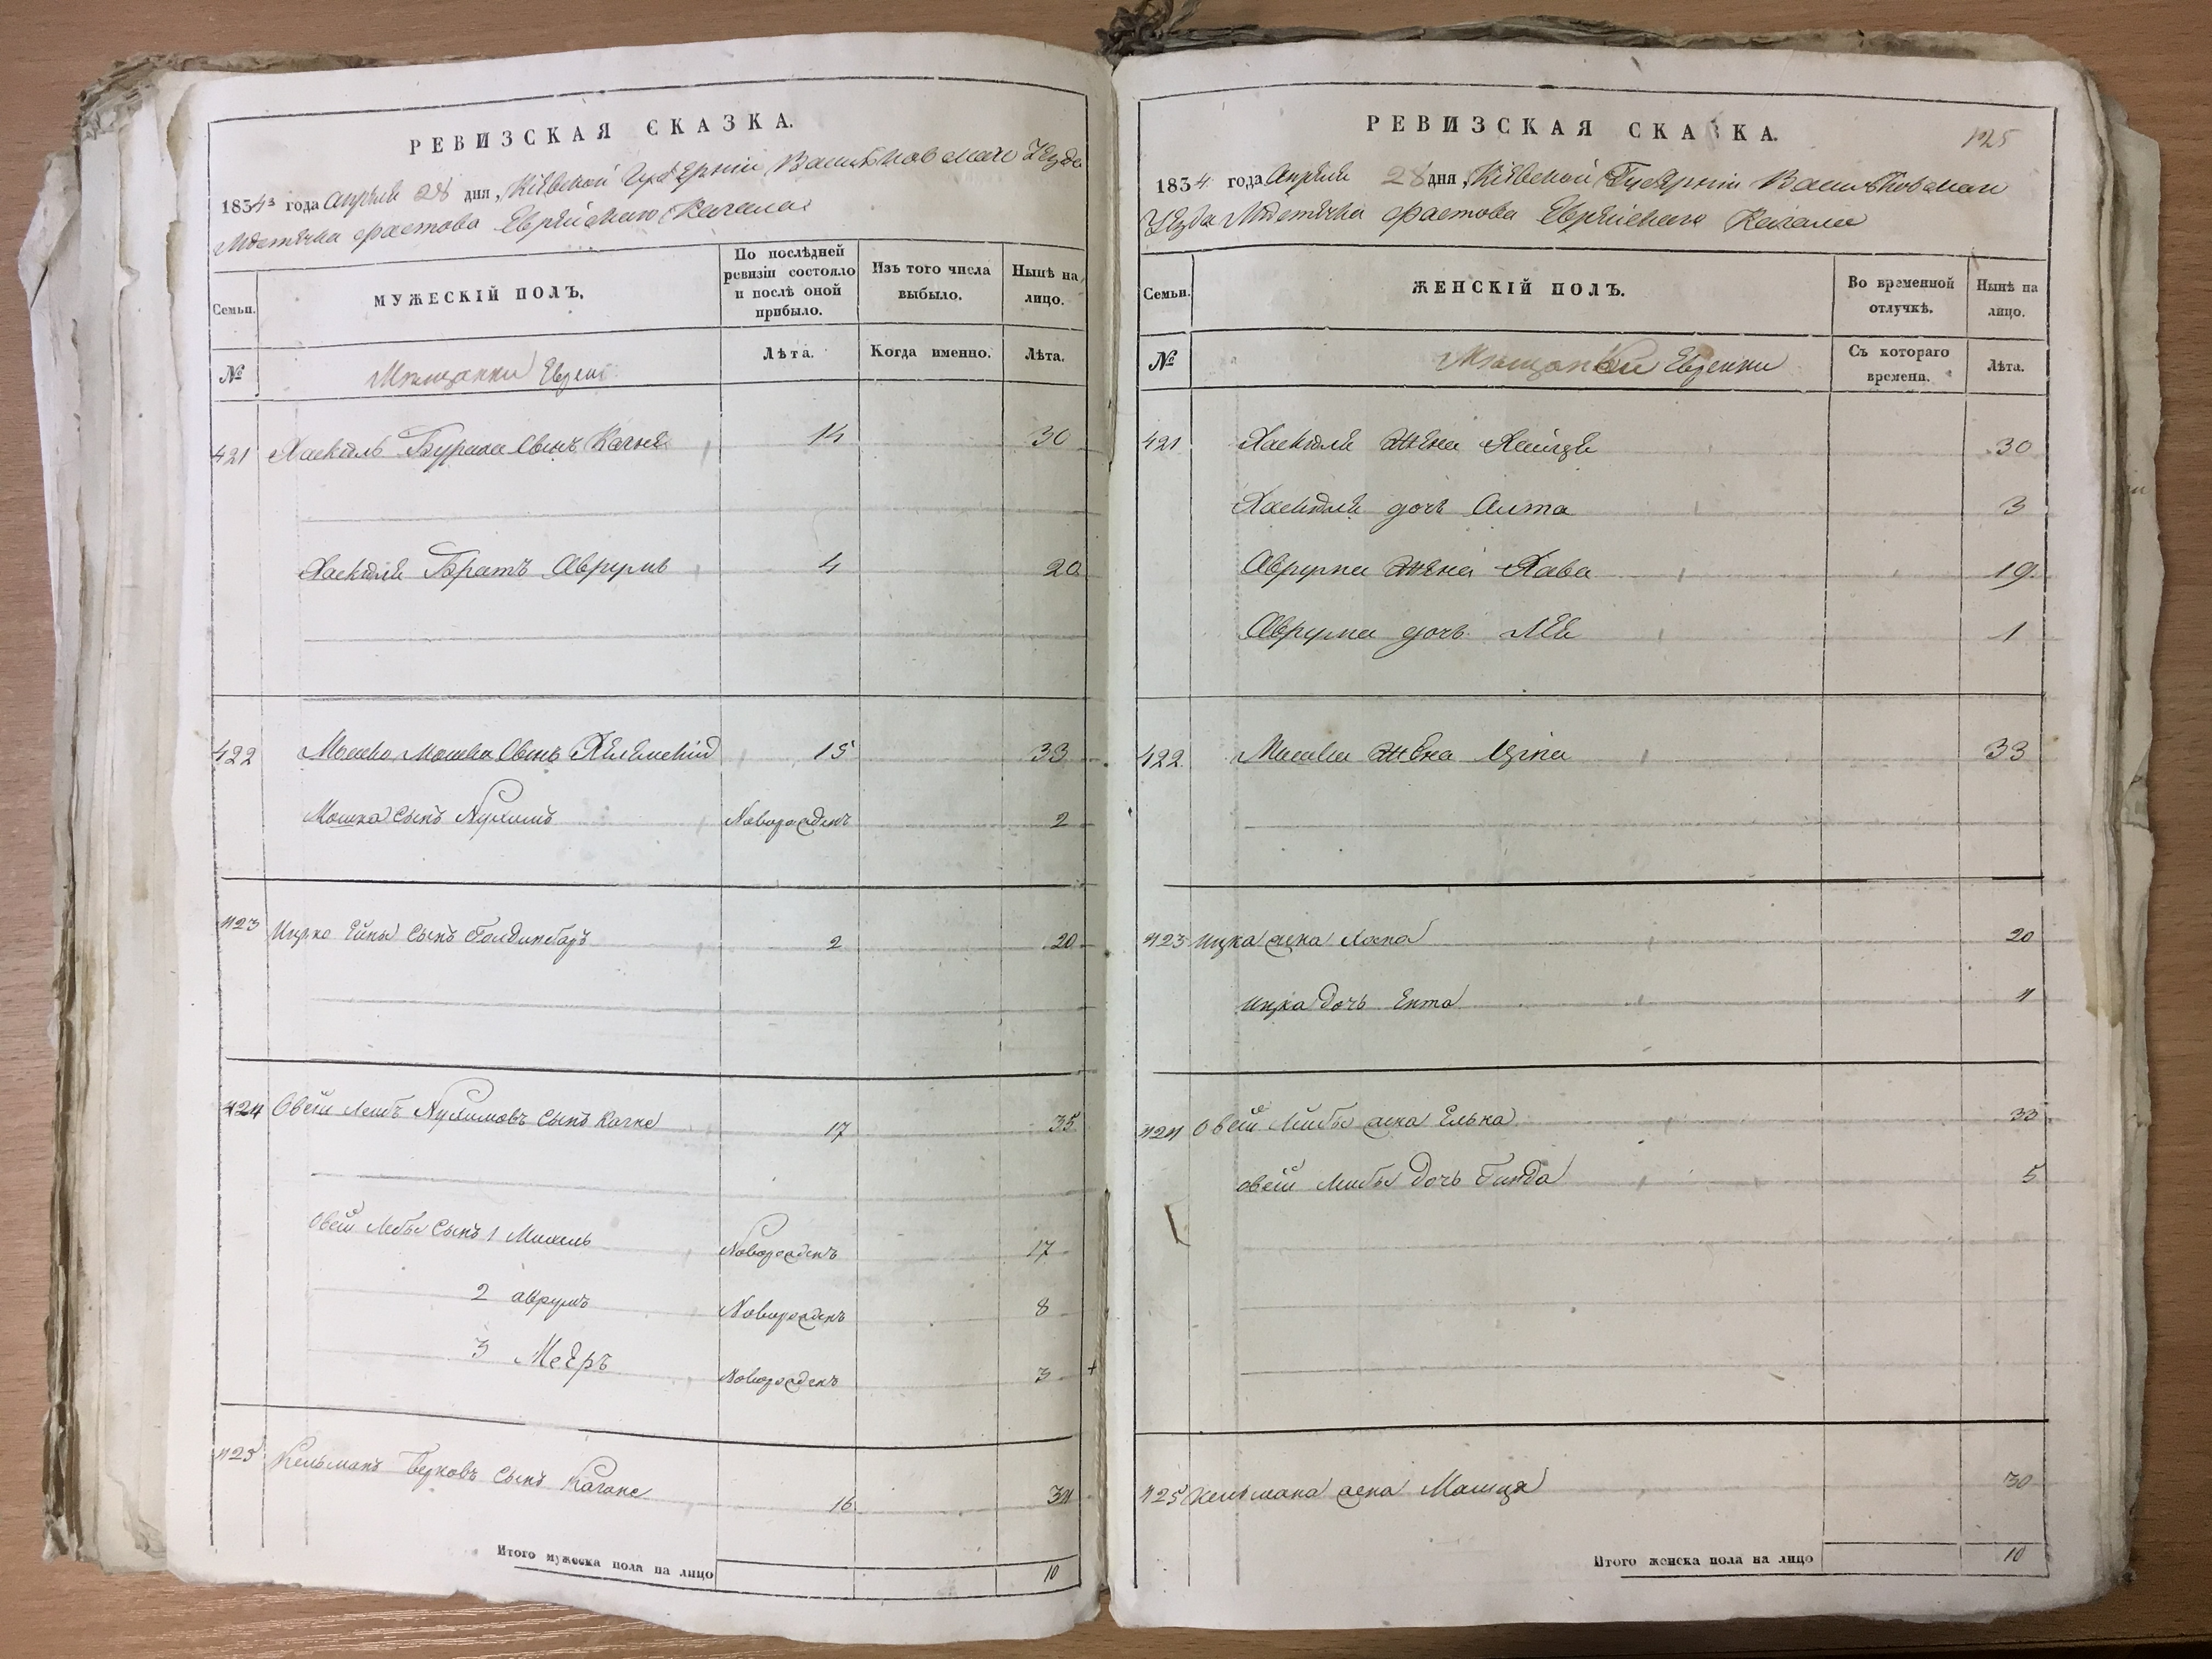 РЕВИЗСКАЯ СКАЗКА.
1834 года Апреля 28 дня, Кіевской Губерніи Васильковскаго Уезда
Местечка Фастова Еврейскаго Кагала
Семьи.
МУЖЕСКІЙ ПОЛЪ.
По послѣдней ревизіи состояло и послѣ оной прибыло.
Изъ того числа выбыло.
Нынѣ на лицо.
№
Мещанки Евреи
Лѣта.
Когда именно.
Лѣта.
421 Хаскель сынъ 14 30
Хаскеля Братъ Аврумъ 4 20
422 Мошко Мошка Сынъ 15 33
Мошка сынъ Нухимъ Новорожденъ 2
423 Ицко сынъ 2 20
424 Овсей Лейбъ Нухимовъ сынъ Кагне 17 35
Овсей Лейбы сынъ 1 Михель Новорожденъ 17
2 аврумъ Новорожденъ 8
3 Мееръ Новорожденъ 3 +
425 Кельманъ Берковъ сынъ Кагане 16 34
Итого мужеска пола на лицо 10
РЕВИЗСКАЯ СКАЗКА.
125
1834 года Апреля 28 дня, Кіевской Губерніи Васильковскаго
Уезда Местечка Фастова Еврейскаго Кагала
Семьи.
ЖЕНСКІЙ ПОЛЪ.
Во временной отлучкѣ.
Нынѣ на лицо.
№
Мещанки Еврейки
Съ котораго времени.
Лѣта.
421 Хаскеля жена 30
Хаскеля дочь 3
Аврума жена Хава 19
Аврума дочь Лея 1
422 Мошка жена 33
423 Ицка жена 20
Ицка дочь Ента 4
424 Овсей Лейбы жена Елька 33
овсей Лейбы дочь Гинда 5
425 Кельмана жена 30
Итого женска пола на лицо 10